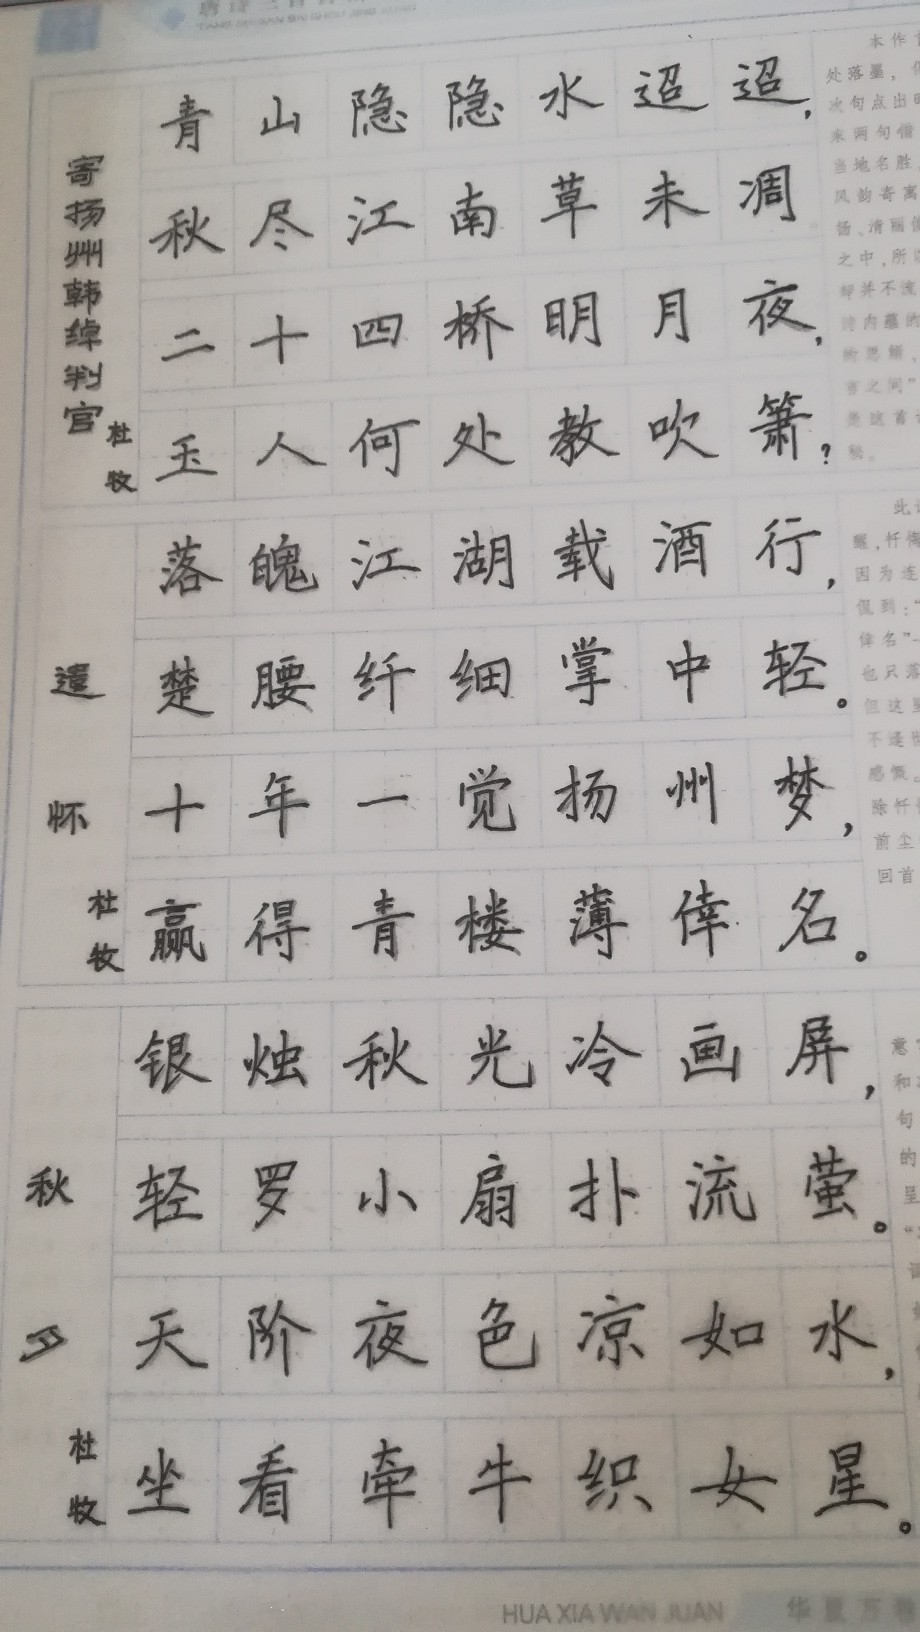 寄扬州韩绰判官
杜牧
青山隐隐水迢迢,
秋尽江南草未凋
二十四桥明月夜,
玉人何处教吹箫?
遣怀
杜牧
落魄江湖载酒行,
楚腰纤细掌中轻。
十年一觉扬州梦,
赢得青楼薄倖名。
秋夕
杜牧
银烛秋光冷画屏,
轻罗小扇扑流萤。
天阶夜色凉如水,
坐看牵牛织女星。
本作
处落墨,
次句点出
末两句借
当地名胜
风韵寄寓
扬、清丽
之中,所
却并不流
诗内蕴的
的思绪,
言之间”
是这首
秘。
此
忏悔
因为连
侃到:“
倖名”
也只落
但这里
不逢
感慨。
除忏
前尘
回首
意
和
句
的
HUA XIA WAN JUAN
华夏万卷